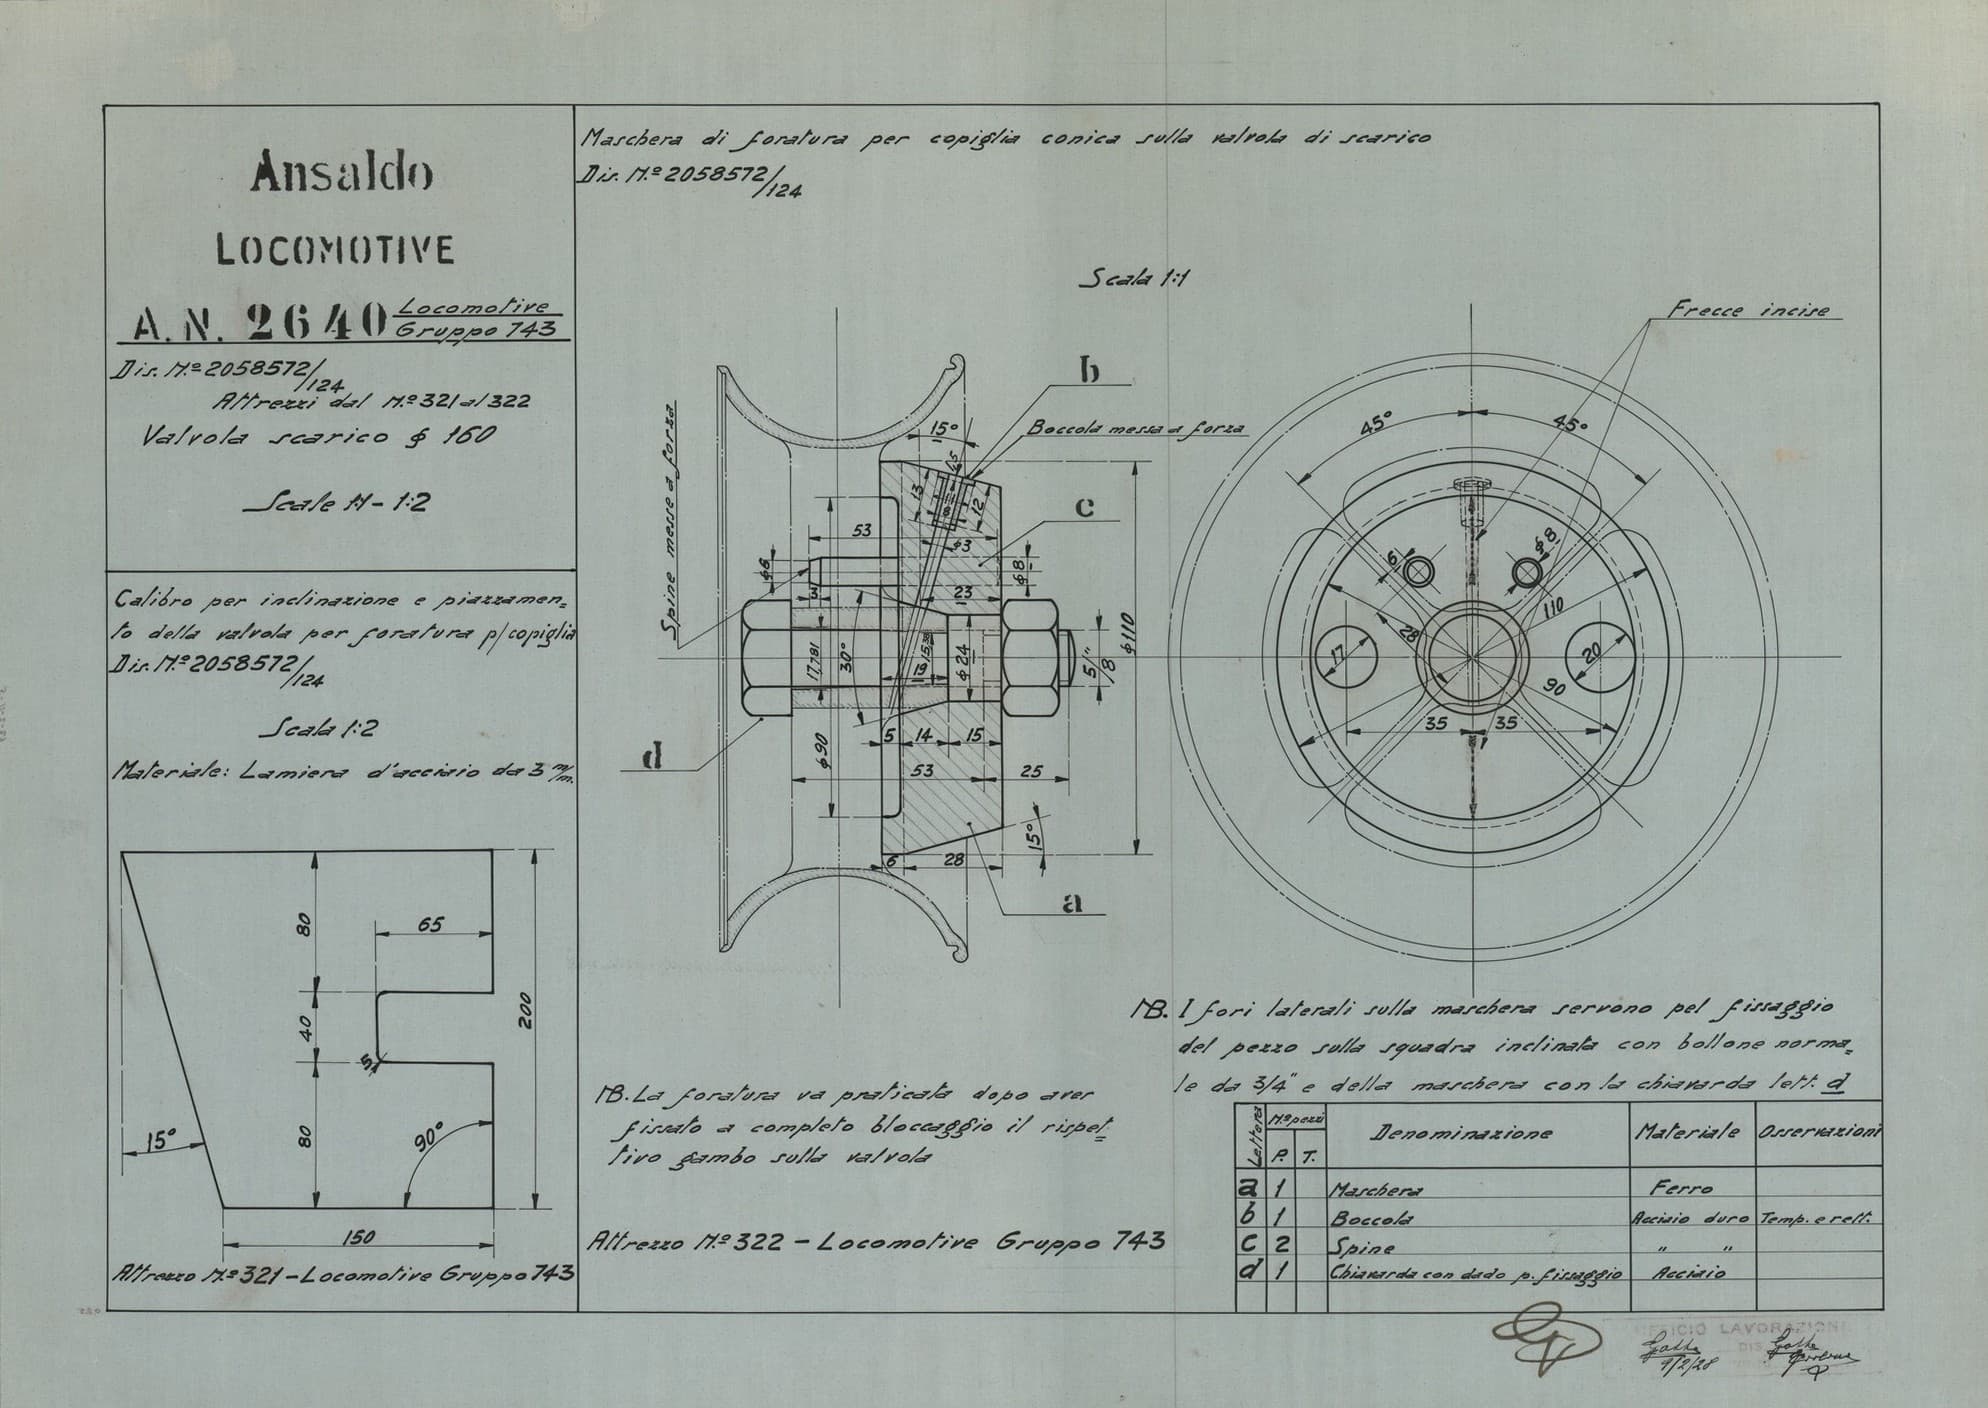 Ansaldo
LOCOMOTIVE
A.N. 2640 Locomotive Gruppo 743
Dis. N.º 2058572/124
Attrezzi dal N.º 321 al 322
Valvola scarico φ 160
Scale 1:1 - 1:2
Calibro per inclinazione e piazzamen=
to della valvola per foratura p/copiglia
Dis. N.º 2058572/124
Scala 1:2
Materiale: Lamiera d'acciaio da 3 m/m.
80
65
40
5
200
80
90°
15°
150
Attrezzo N.º 321 - Locomotive Gruppo 743
Maschera di foratura per copiglia conica sulla valvola di scarico
Dis. N.º 2058572/124
Scala 1:1
Frecce incise
b
Boccola messa a forza
15°
c
Spine messe a forza
13
12
53
φ3
φ6
3
φ8
23
17,791
30°
19
φ24
5/8"
φ110
d
φ90
5
14
15
53
25
15°
6
28
a
45°
45°
6
φ8
110
28
17
20
90
35
35
NB. La foratura va praticata dopo aver
fissato a completo bloccaggio il rispet=
tivo gambo sulla valvola
Attrezzo N.º 322 - Locomotive Gruppo 743
NB. I fori laterali sulla maschera servono pel fissaggio
del pezzo sulla squadra inclinata con bollone norma=
le da 3/4" e della maschera con la chiavarda lett. d
Lettera N.º pezzi P. T. Denominazione Materiale Osservazioni
a 1 Maschera Ferro
b 1 Boccola Acciaio duro Temp. e rett.
c 2 Spine " "
d 1 Chiavarda con dado p. fissaggio Acciaio
UFFICIO LAVORAZIONI
9/2/28